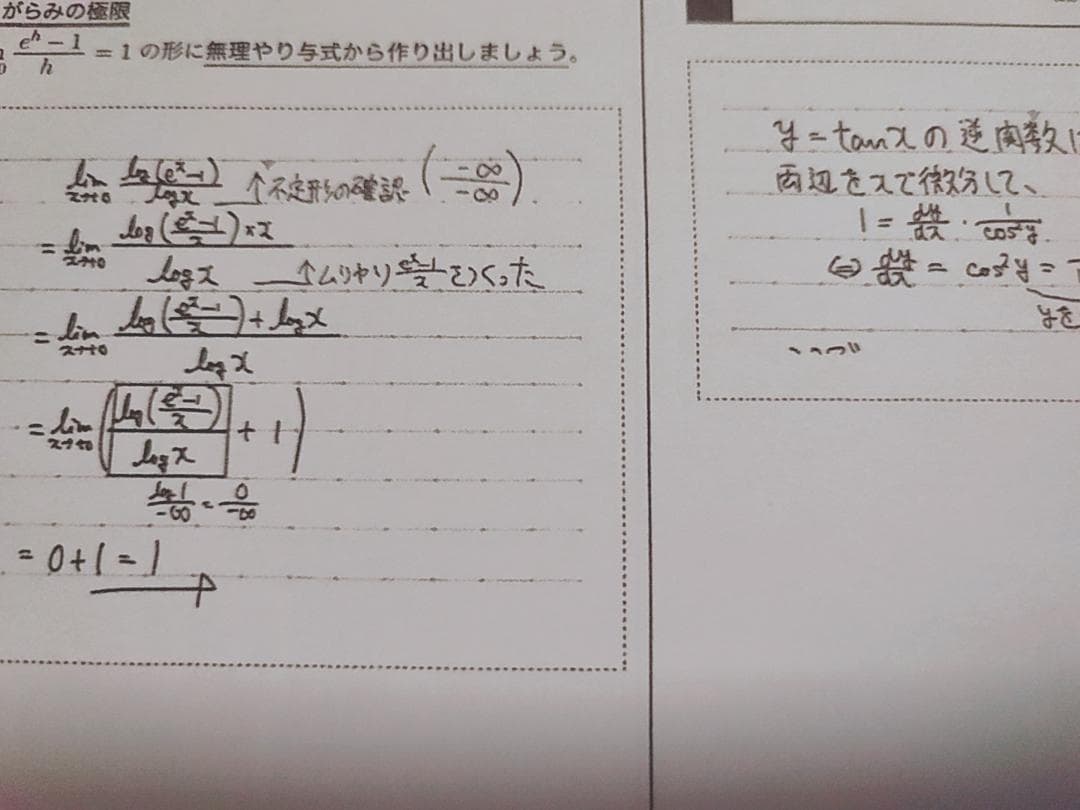 がらみの極限
e^h − 1 / h = 1 の形に無理やり与式から作り出しましょう。
lim x→+0 log(e^x−1) / log x ↑不定形の確認 (−∞ / −∞)
= lim x→+0 log((e^x−1)/x)×x / log x ↑ムリヤリ (e^x−1)/x をつくった
= lim x→+0 log((e^x−1)/x) + log x / log x
= lim x→+0 ( log((e^x−1)/x) / log x + 1 )
log 1 / −∞ = 0 / −∞
= 0+1 = 1
y = tan x の逆関数は
両辺をxで微分して、
1 = dy/dx · 1/cos²y
⇔ dy/dx = cos²y =
yを